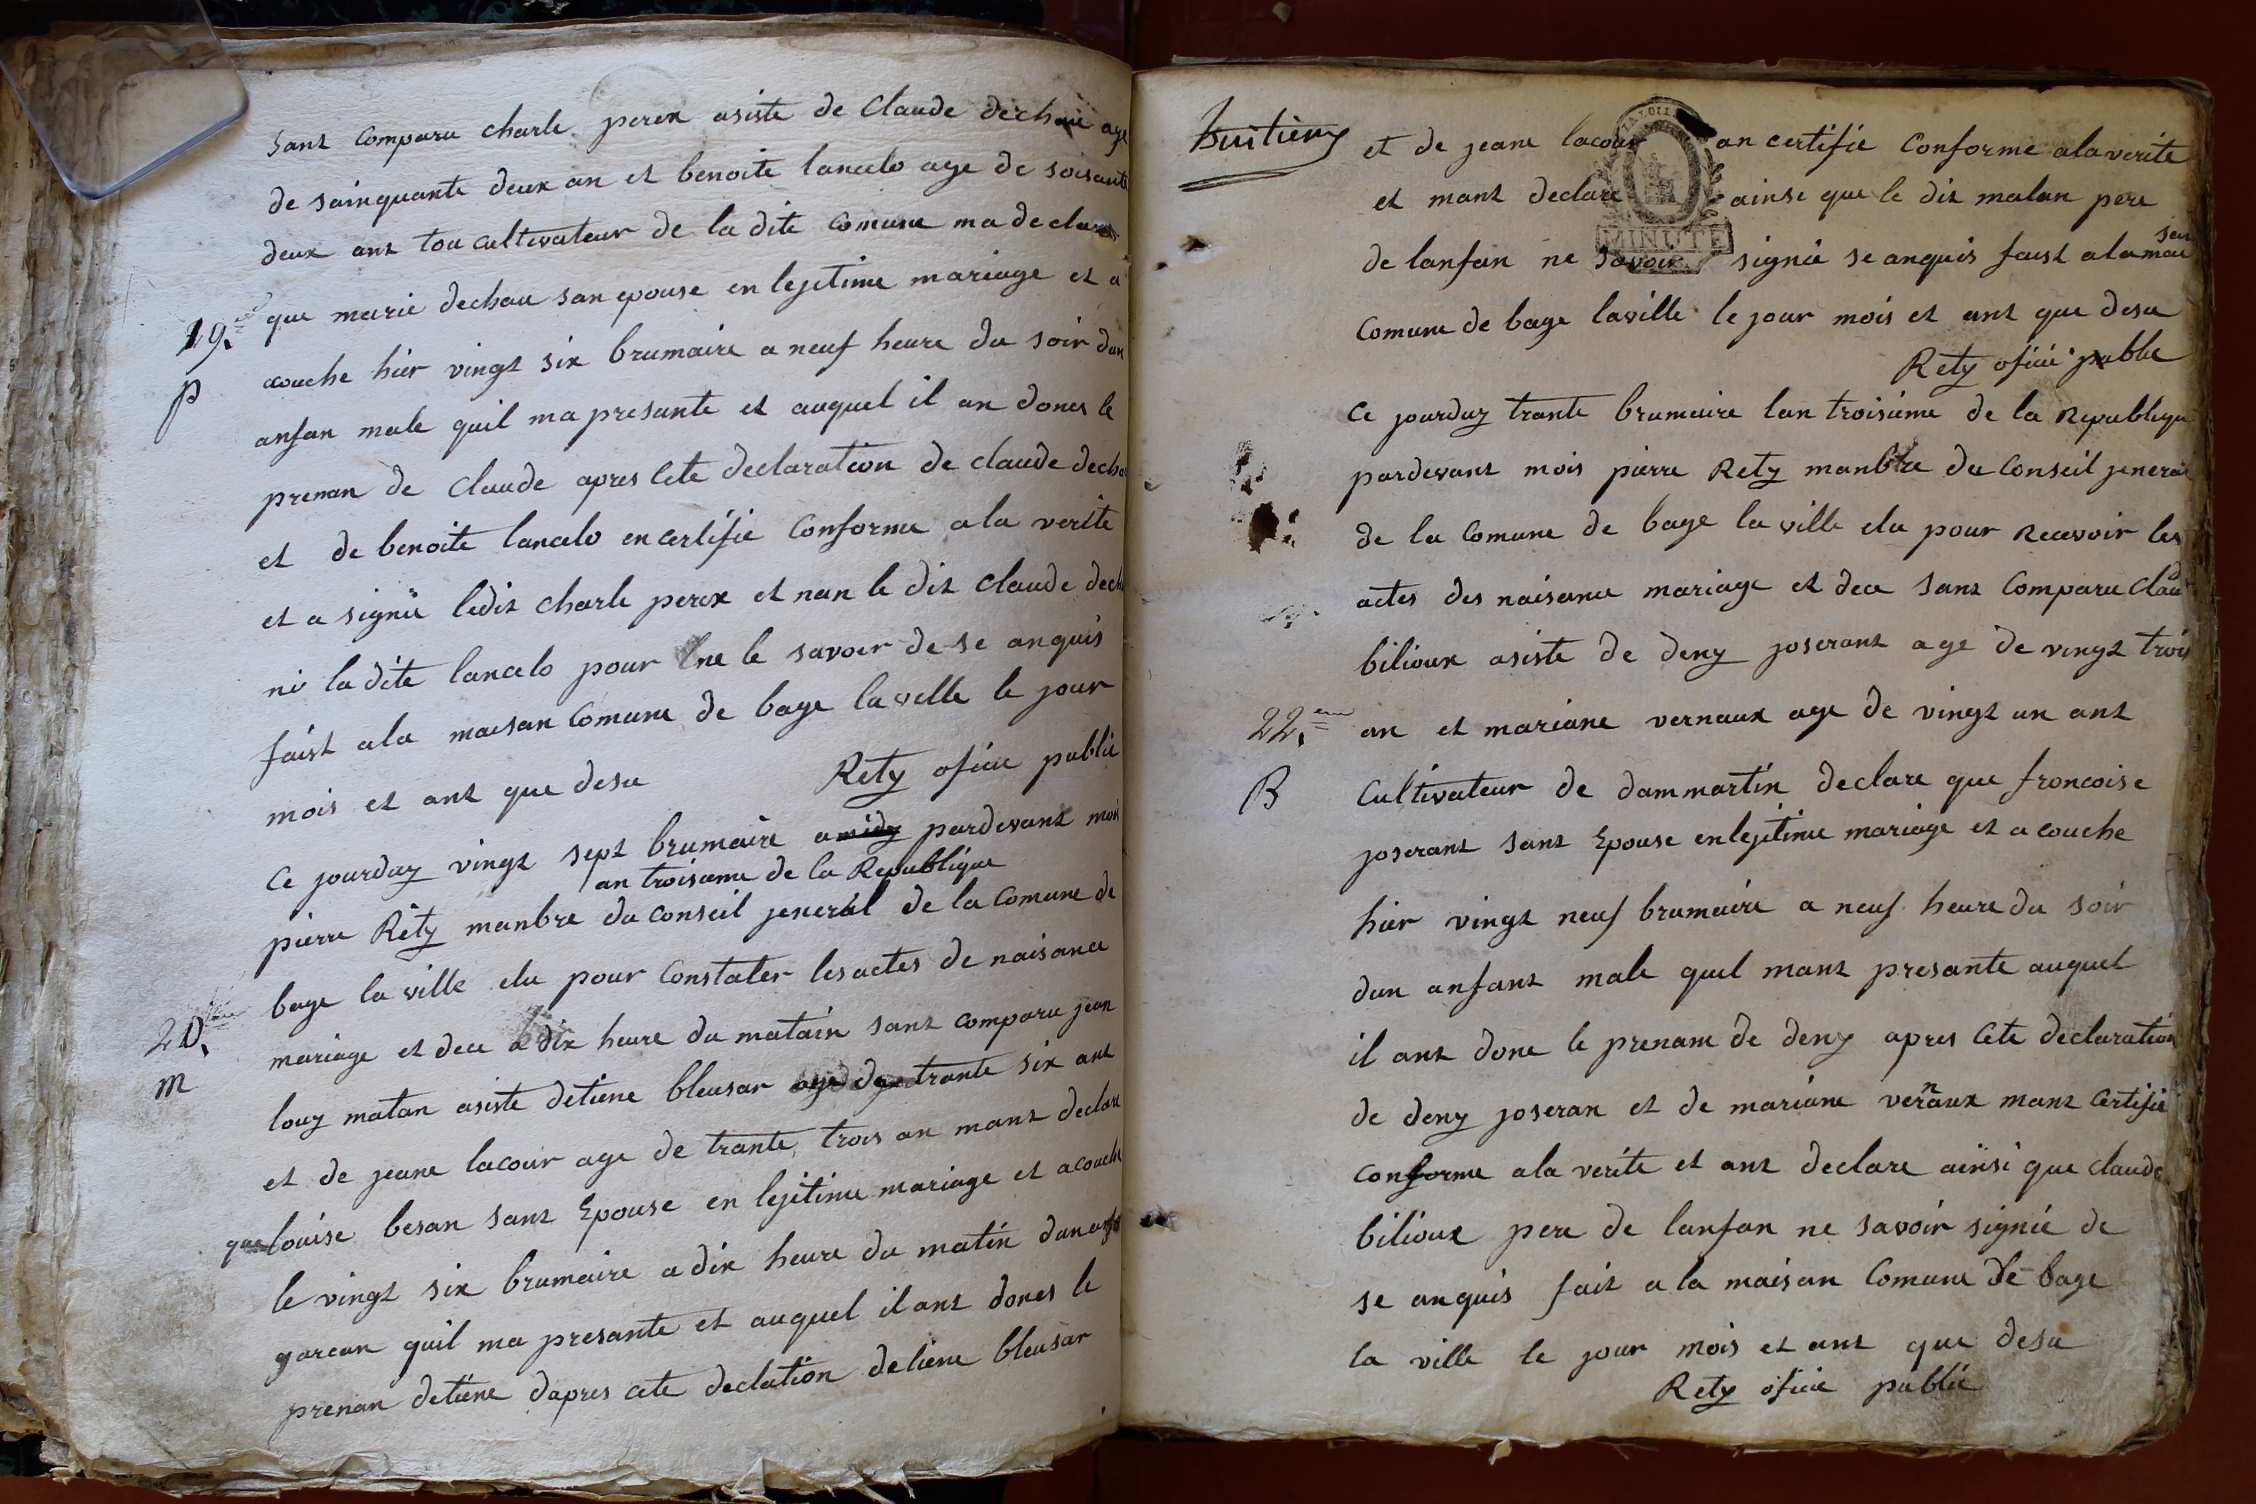 sant comparu charle perex asiste de claude dechau age
de sainquante deux an et benoite lancelo age de soisante
deux ant tou cultivateur de la dite comune ma declare
que marie dechau san epouse en lejetime mariage et a
19.e
couche hier vingt six brumaire a neuf heure du soir dun
P
anfan male quil ma presante et auquel il an dones le
prenan de claude apres cete declaration de claude decha
et de benoite lancelo en certifie conforme a la verite
et a signie ledit charle perex et nan le dit claude dech
ni la dite lancelo pour ne le savoir de se anquis
faist ala maisan comune de bage laville le jour
mois et ant que desu
Rety oficie publie
ce jourduy vingt sept brumaire a midy pardevant moi
an troisieme de la Republique
pierre Rety manbre du conseil jeneral de la comune de
bage la ville elu pour constater les actes de naisance
20.
mariage et dece a dix heure du matain sant comparu jean
m
louy matan asiste detiene bleusar age de trante six ant
et de jeane lacour age de trante trois an mant declare
que louise besan sant Epouse en lejitime mariage et acouche
le vingt six brumaire a dix heure du matin dun anfan
garcan quil ma presante et auquel il ant dones le
prenan detiene dapres cete declation detiene bleusar
huitieme
et de jeane lacour an certifie conforme alaverite
et mant declare ainse que le dit matan pere
de lanfan ne savoir signie se anquis faist alamai
san
comune de bage laville le jour mois et ant que desu
MINUTE
Rety oficie publie
ce jourduy trante brumaire lan troisieme de la Republique
pardevant mois pierre Rety manbre du conseil jeneral
de la comune de bage la ville elu pour recevoir les
actes des naisance mariage et dece sant comparu claud
bilioux asiste de deny joserant age de vingt trois
22.eme
an et mariane vernaux age de vingt un ant
B
cultivateur de dammartin declare que francoise
joserant sant Epouse enlejitime mariage et a couche
hier vingt neuf brumaire a neuf heure du soir
dun anfant male quil mant presante auquel
il ant done le prenam de deny apres cete declaration
de deny joseran et de mariane vernaux mant certifie
conforme ala verite et ant declare ainsi que claude
bilioux pere de lanfan ne savoir signie de
se anquis fait a la maisan comune de bage
la ville le jour mois et ant que desu
Rety oficie publie